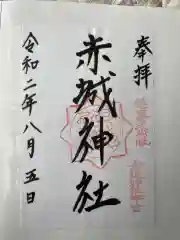 奉拝
赤城神社
令和二年八月五日